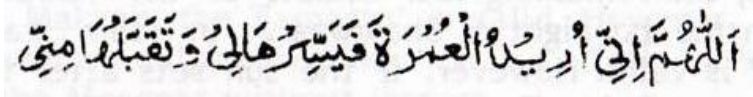 اَللّٰهُمَّ اِنِّيْ اُرِيْدُ الْعُمْرَةَ فَيَسِّرْهَا لِيْ وَ تَقَبَّلْهَا مِنِّيْ